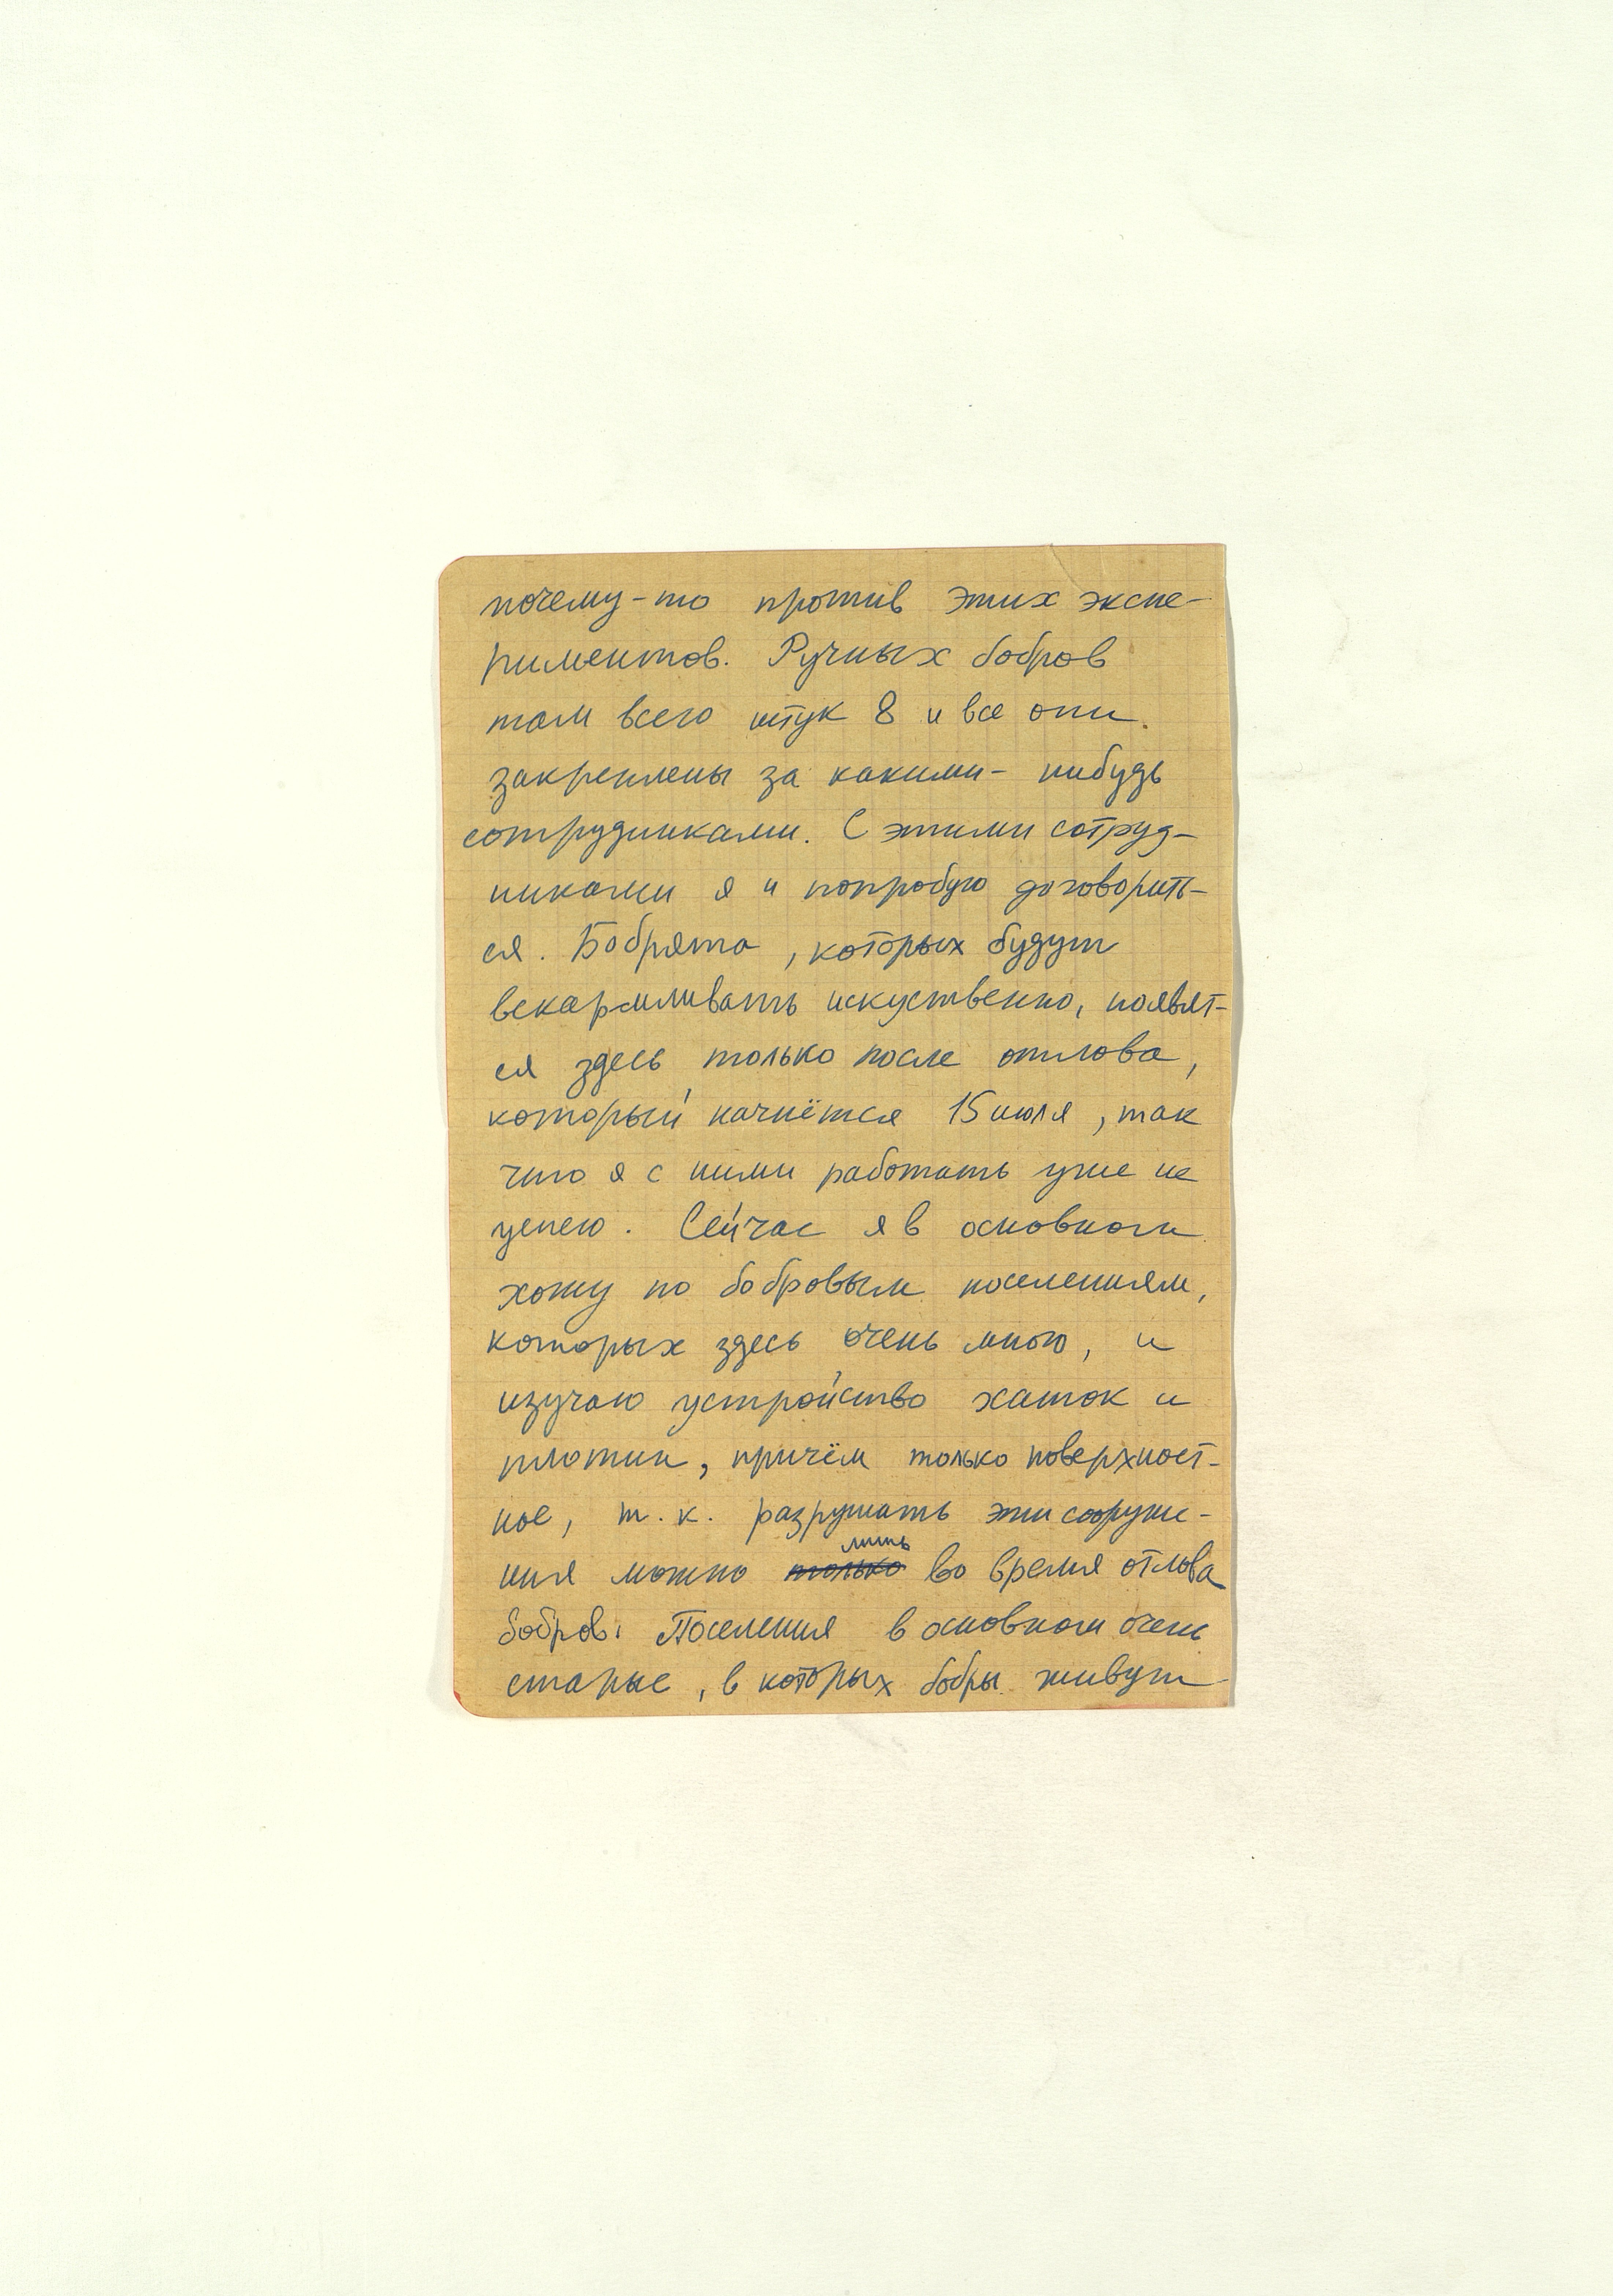 почему-то против этих экспе-
риментов. Ручных бобров
там всего штук 8 и все они
закреплены за какими-нибудь
сотрудниками. С этими сотруд-
никами я и попробую договорить-
ся. Бобрята, которых будут
вскармливать искуственно, появят-
ся здесь только после отлова,
который начнётся 15 июля, так
что я с ними работать уже не
успею. Сейчас я в основном
хожу по бобровым поселениям,
которых здесь очень много, и
изучаю устройство хаток и
плотин, причём только поверхност-
ное, т.к. разрушать эти сооруже-
ния можно ~~только~~ лишь во время отлова
бобров. Поселения в основном очень
старые, в которых бобры живут